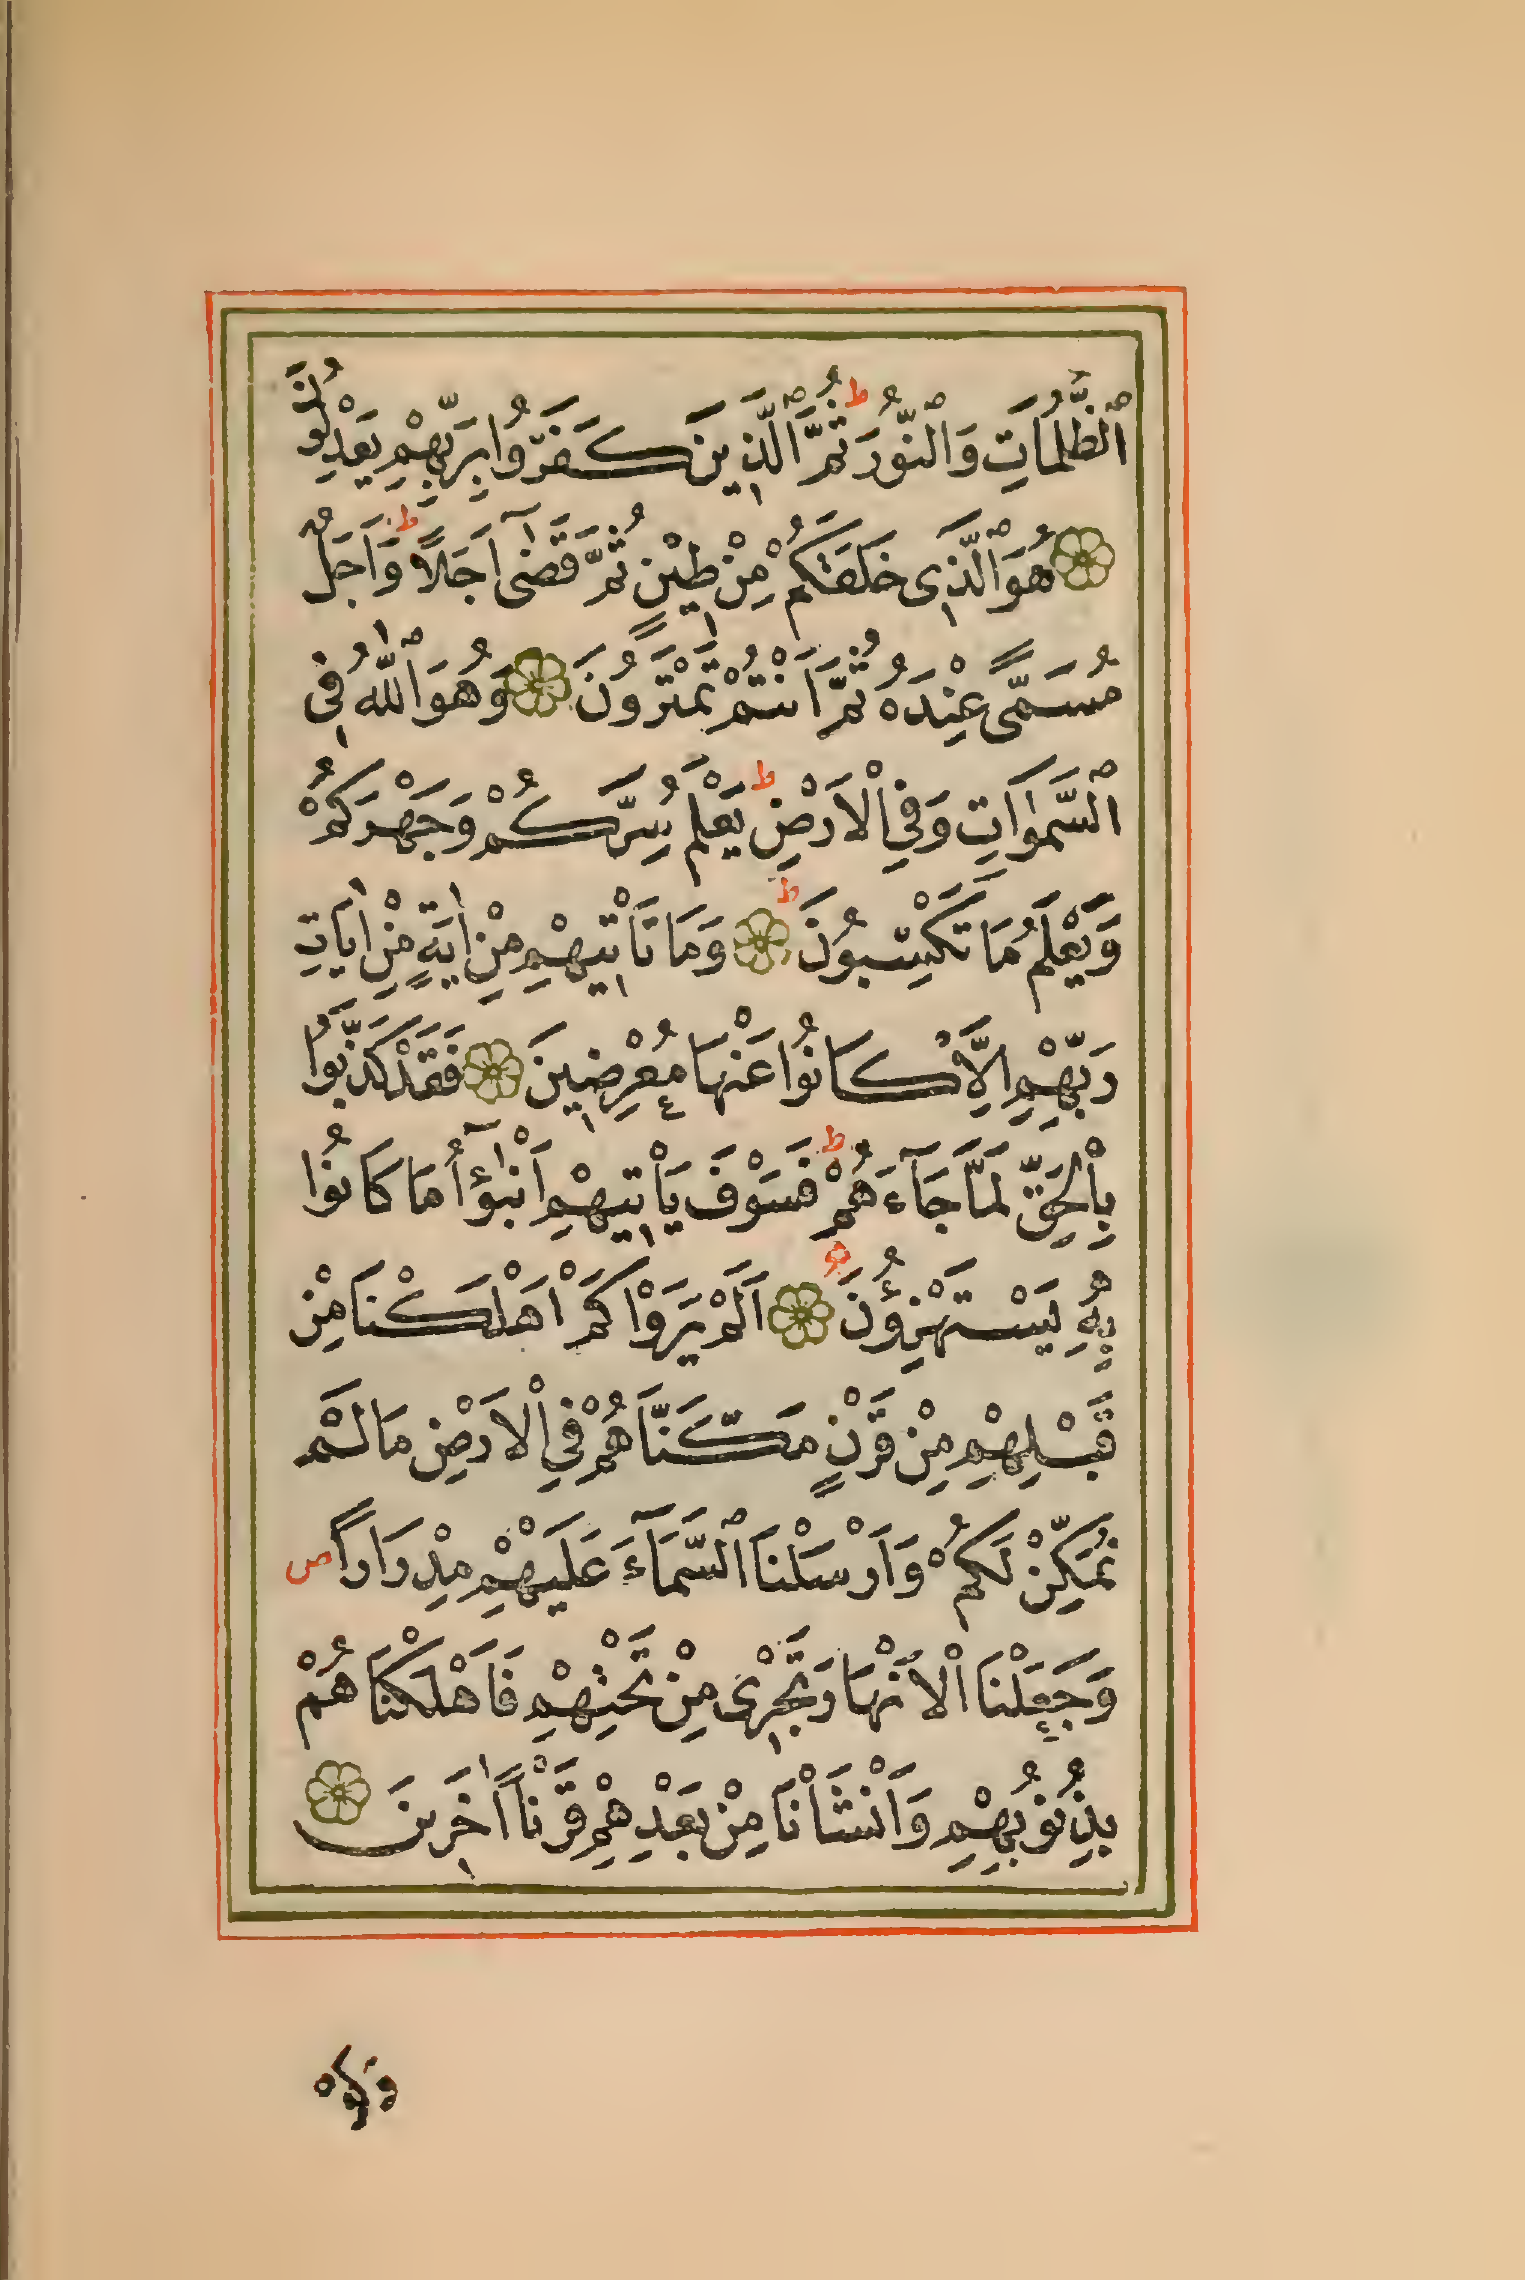 ٱلظُّلُمَاتِ وَٱلنُّورَ ط ثُمَّ ٱلَّذِينَ كَفَرُوا بِرَبِّهِمْ يَعْدِلُونَ
هُوَ ٱلَّذِى خَلَقَكُمْ مِنْ طِينٍ ثُمَّ قَضٰٓى اَجَلًا ط وَاَجَلٌ
مُسَمًّى عِنْدَهُ ثُمَّ اَنْتُمْ تَمْتَرُونَ وَهُوَ ٱللّٰهُ فِى
ٱلسَّمٰوَاتِ وَفِى اْلاَرْضِ ط يَعْلَمُ سِرَّكُمْ وَجَهْرَكُمْ
وَيَعْلَمُ مَا تَكْسِبُونَ ط وَمَا تَاْتِيهِمْ مِنْ اٰيَةٍ مِنْ اٰيَاتِ
رَبِّهِمْ اِلَّا كَانُوا عَنْهَا مُعْرِضِينَ فَقَدْ كَذَّبُوا
بِاْلحَقِّ لَمَّا جَآءَهُمْ ط فَسَوْفَ يَاْتِيهِمْ اَنْبٰٓؤُا مَا كَانُوا
بِهِ يَسْتَهْزِؤُنَ اَلَمْ يَرَوْا كَمْ اَهْلَكْنَا مِنْ
قَبْلِهِمْ مِنْ قَرْنٍ مَكَّنَّاهُمْ فِى اْلاَرْضِ مَا لَمْ
نُمَكِّنْ لَكُمْ وَاَرْسَلْنَا ٱلسَّمَآءَ عَلَيْهِمْ مِدْرَارًا ص
وَجَعَلْنَا اْلاَنْهَارَ تَجْرِى مِنْ تَحْتِهِمْ فَاَهْلَكْنَاهُمْ
بِذُنُوبِهِمْ وَاَنْشَاْنَا مِنْ بَعْدِهِمْ قَرْنًا اٰخَرِينَ